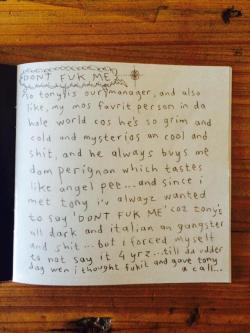 DONT FUK ME
so tony is our manager, and also
like, my mos favrit person in da
hole world cos he's so grim and
cold and mysterios an cool and
shit, and he always buys me
dom perignon which tastes
like angel pee...and since i
met tony i'v alwayz wanted
to say 'DONT FUK ME' coz tony's
all dark and italian an gangster
and shit... but i forced myself
to not say it 4 yrz...till da udder
day wen i thought fukit and gave tony
a call...